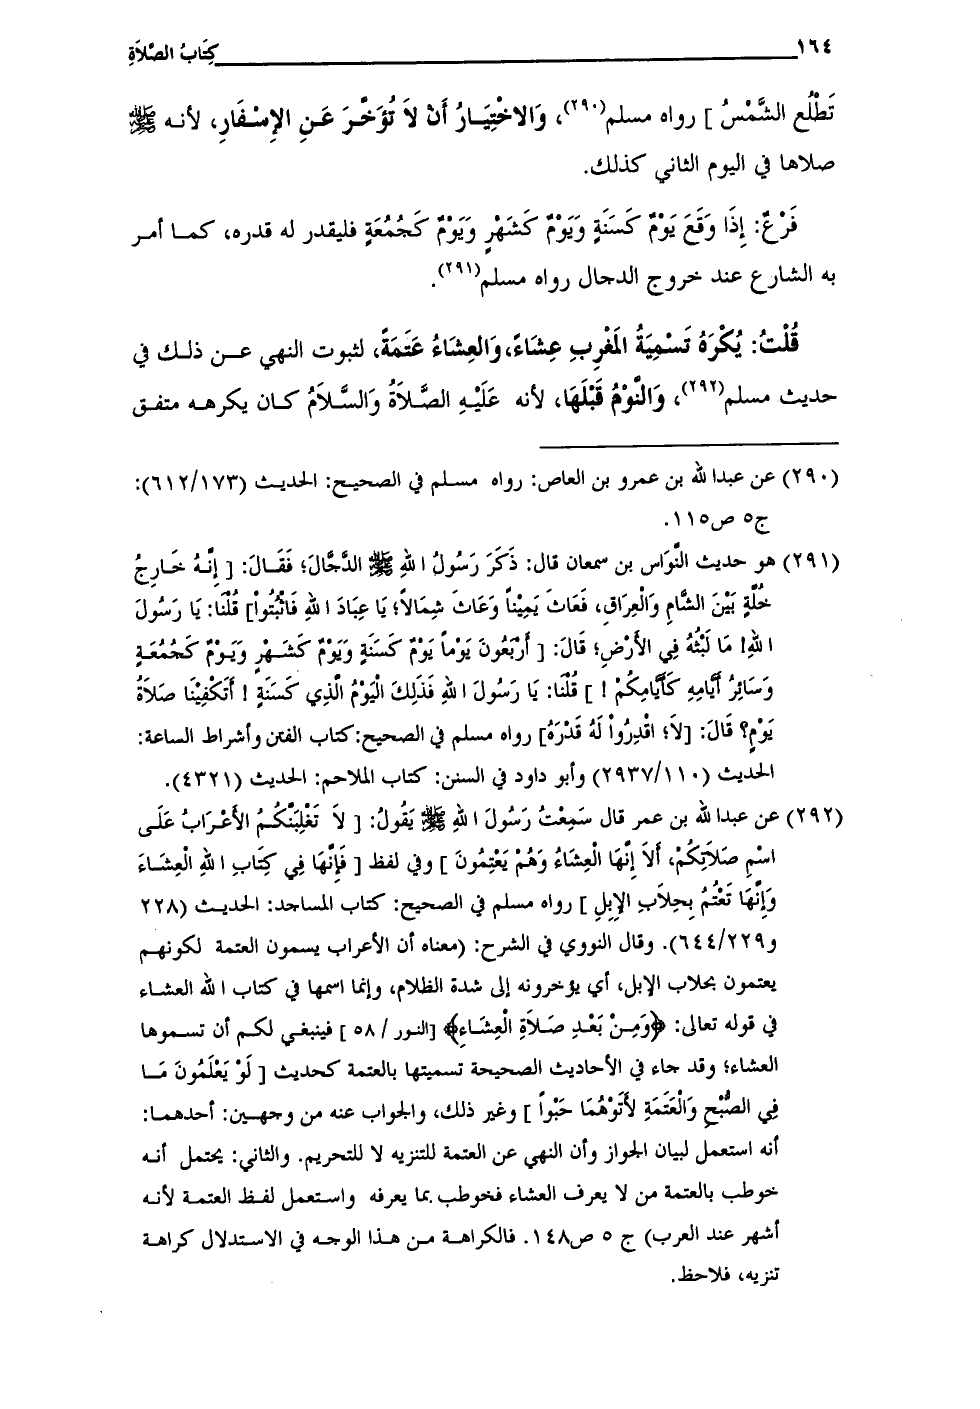 ١٦٤ كِتَابُ الصَّلاَةِ
تَطْلُع الشَّمْسُ ] رواه مسلم(٢٩٠)، وَالاخْتِيَـارُ أَنْ لاَ تُؤَخَّرَ عَنِ الإِسْفَارِ، لأنـه ﷺ
صلاها في اليوم الثاني كذلك.
فَرْعٌ: إِذَا وَقَعَ يَوْمٌ كَسَنَةٍ وَيَوْمٌ كَشَهْرٍ وَيَوْمٌ كَجُمُعَةٍ فليقدر له قدره، كمـا أمـر
به الشارع عند خروج الدجال رواه مسلم(٢٩١).
قُلْتُ: يُكْرَهُ تَسْمِيَةُ المَغْرِبِ عِشَاءً، وَالعِشَاءُ عَتَمَةً، لثبوت النهي عـن ذلـك في
حديث مسلم(٢٩٢)، وَالنَّوْمُ قَبْلَهَا، لأنه عَلَيْهِ الصَّلاَةُ وَالسَّلاَمُ كـان يكرهـه متفـق
(٢٩٠) عن عبدا لله بن عمرو بن العاص: رواه مسلـم في الصحيـح: الحديـث (٦١٢/١٧٣):
ج٥ ص١١٥.
(٢٩١) هو حديث النَّوَاس بن سمعان قال: ذَكَرَ رَسُولُ ا للهِ ﷺ الدَّجَّالَ؛ فَقَـالَ: [ إِنَّـهُ خَـارِجٌ
خُلَّةٍ بَيْنَ الشَّامِ وَالْعِرَاقِ، فَعَاثَ يَمِيْناً وَعَاثَ شِمَالاً؛ يَا عِبَادَ ا للهِ فَاثْبُتُواْ] قُلْنَا: يَا رَسُولَ
ا للهِ! مَا لَبْثُهُ فِي الأَرْضِ؛ قَالَ: [ أَرْبَعُونَ يَوْماً يَوْمٌ كَسَنَةٍ وَيَوْمٌ كَشَـهْرٍ وَيَـوْمٌ كَجُمُعَـةٍ
وَسَائِرُ أَيَّامِهِ كَأَيَّامِكُمْ ! ] قُلْنَا: يَا رَسُولَ ا للهِ فَذَلِكَ الْيَوْمُ الَّذِي كَسَنَةٍ ! أَتَكْفِيْنَا صَلاَةُ
يَوْمٍ؟ قَالَ: [لاَ؛ اقْدِرُواْ لَهُ قَدْرَهُ] رواه مسلم في الصحيح:كتاب الفتن وأشراط الساعة:
الحديث (٢٩٣٧/١١٠) وأبو داود في السنن: كتاب الملاحم: الحديث (٤٣٢١).
(٢٩٢) عن عبدا لله بن عمر قال سَمِعْتُ رَسُولَ ا للهِ ﷺ يَقُولُ: [ لاَ تَغْلِبَنَّكُمُ الأَعْرَابُ عَلَـى
اسْمِ صَلاَتِكُمْ، أَلاَ إِنَّهَا الْعِشَاءُ وَهُمْ يَعْتِمُونَ ] وفي لفظ [ فَإِنَّهَا فِي كِتَابِ ا للهِ الْعِشَـاءَ
وَإِنَّهَا تَعْتُمُ بِحِلاَبِ الإِبِلِ ] رواه مسلم في الصحيح: كتاب المساجد: الحديـث (٢٢٨
و٦٤٤/٢٢٩). وقال النووي في الشرح: (معناه أن الأعراب يسمون العتمة لكونهـم
يعتمون بحلاب الإبل، أي يؤخرونه إلى شدة الظلام، وإنما اسمها في كتاب ا لله العشـاء
في قوله تعالى: ﴿وَمِـنْ بَعْـدِ صَـلاَةِ الْعِشَـاءِ﴾ [النور / ٥٨ ] فينبغي لكـم أن تسـموها
العشاء؛ وقد جاء في الأحاديث الصحيحة تسميتها بالعتمة كحديث [ لَوْ يَعْلَمُونَ مَـا
فِي الصُّبْحِ وَالْعَتَمَةِ لأَتَوْهُمَا حَبْواً ] وغير ذلك، والجواب عنه من وجهين: أحدهمـا:
أنه استعمل لبيان الجواز وأن النهي عن العتمة للتنزيه لا للتحريم. والثاني: يحتمل أنـه
خوطب بالعتمة من لا يعرف العشاء فخوطب بما يعرفه واستعمل لفـظ العتمـة لأنـه
أشهر عند العرب) ج ٥ ص١٤٨. فالكراهـة مـن هـذا الوجـه في الاسـتدلال كراهـة
تنزيه، فلاحظ.